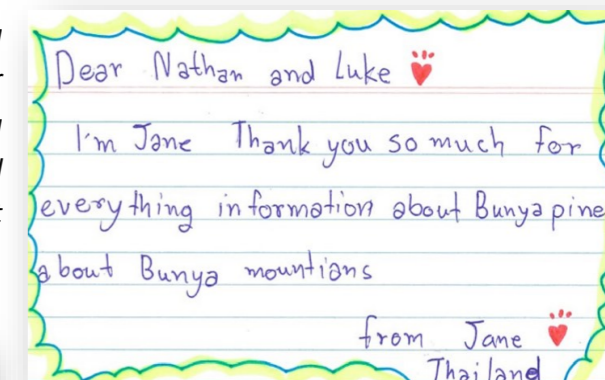 Dear Nathan and Luke
I'm Jane Thank you so much for
everything information about Bunya pine
about Bunya mountians
from Jane
Thailand